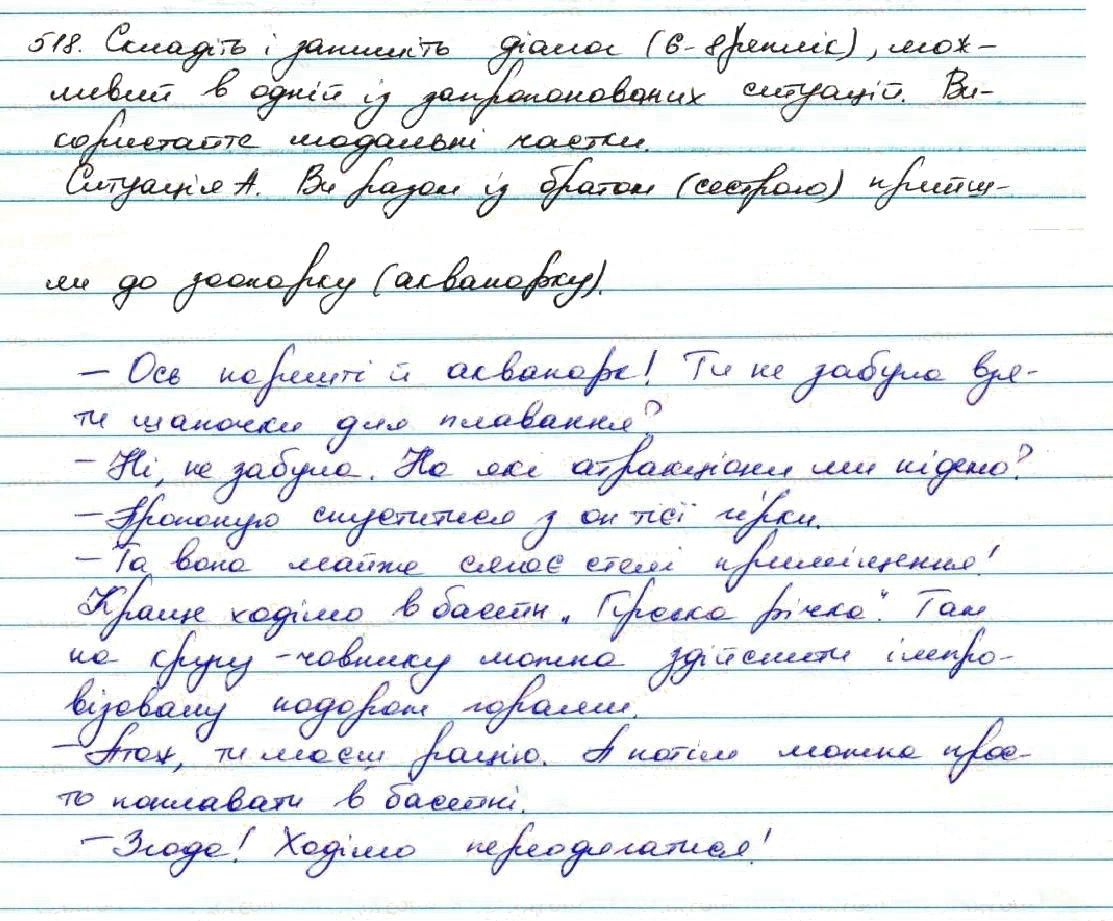 518. Складіть і запишіть діалог (6-8 реплік), мож-
ливий в одній із запропонованих ситуацій. Ви-
користайте модальні частки.
Ситуація А. Ви разом із братом (сестрою) прийш-
ли до зоопарку (аквапарку).
— Ось нарешті й аквапарк! Ти не забула взя-
ти шапочки для плавання?
— Ні, не забула. На які атракціони ми підемо?
— Пропоную спуститися з он тієї гірки.
— Та вона майже сягає стелі приміщення!
Краще ходімо в басейн „Гірська річка". Там
на крузі-човнику можна здійснити імпро-
візовану подорож горами.
— Атож, ти маєш рацію. А потім можна прос-
то поплавати в басейні.
— Згода! Ходімо переодягатися!